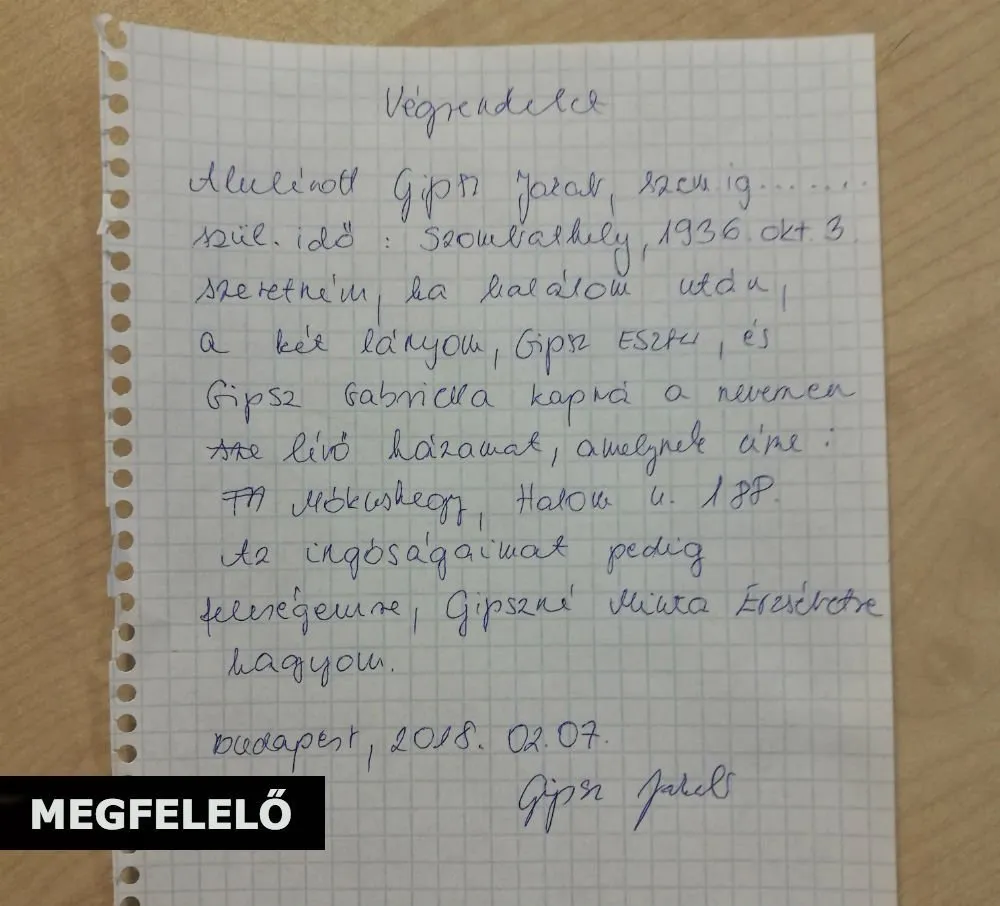 Végrendelet
Alulírott Gipsz Jakab, szem.ig........
szül. idő : Szombathely, 1936. okt. 3.
szeretném, ha halálom után,
a két lányom, Gipsz Eszter, és
Gipsz Gabriella kapná a nevemen
lévő házamat, amelynek címe :
Mókushegy, Halom u. 188.
Az ingóságaimat pedig
feleségemre, Gipszné Minta Erzsébetre
hagyom.
Budapest, 2018. 02.07.
Gipsz Jakab
MEGFELELŐ